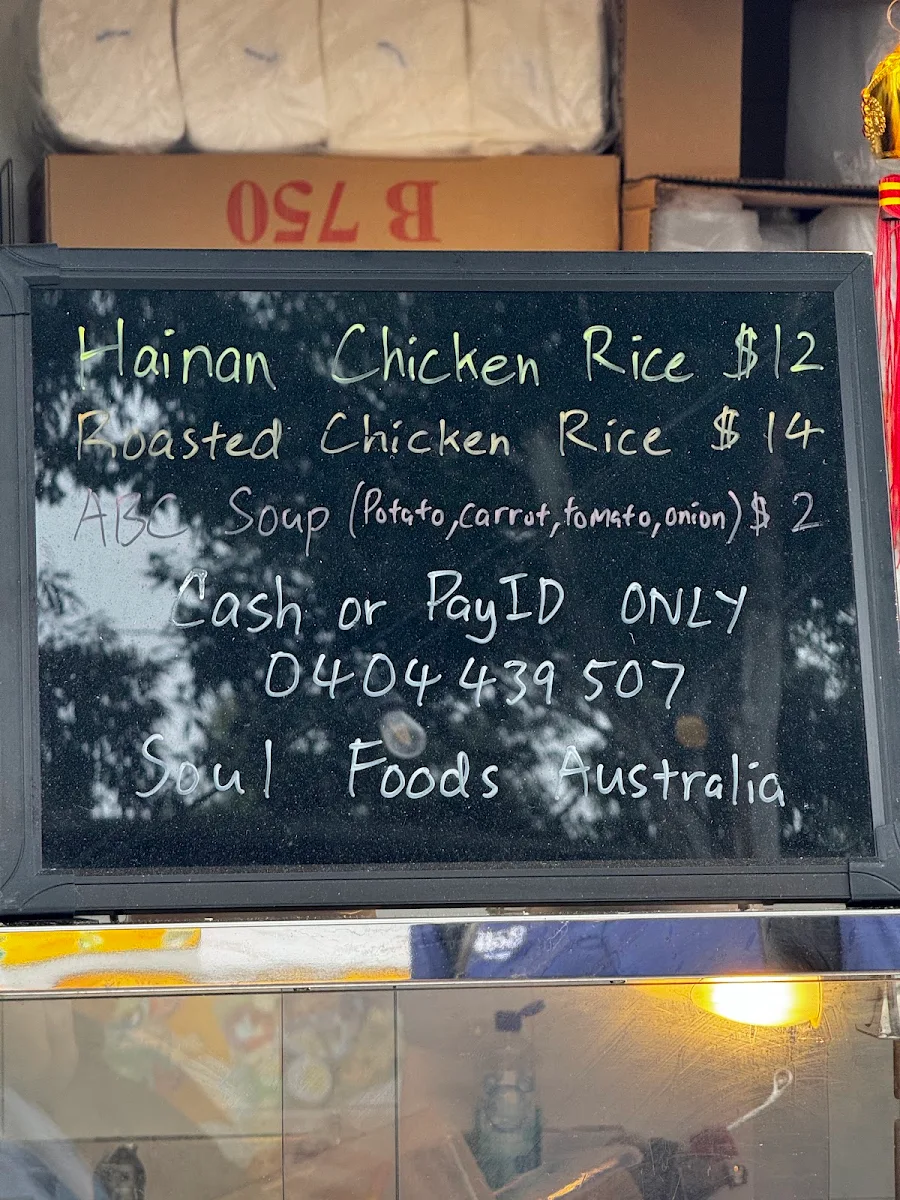 B 750
Hainan Chicken Rice $12
Roasted Chicken Rice $14
ABC Soup (Potato,carrot,tomato,onion) $ 2
Cash or PayID ONLY
0404 439 507
Soul Foods Australia